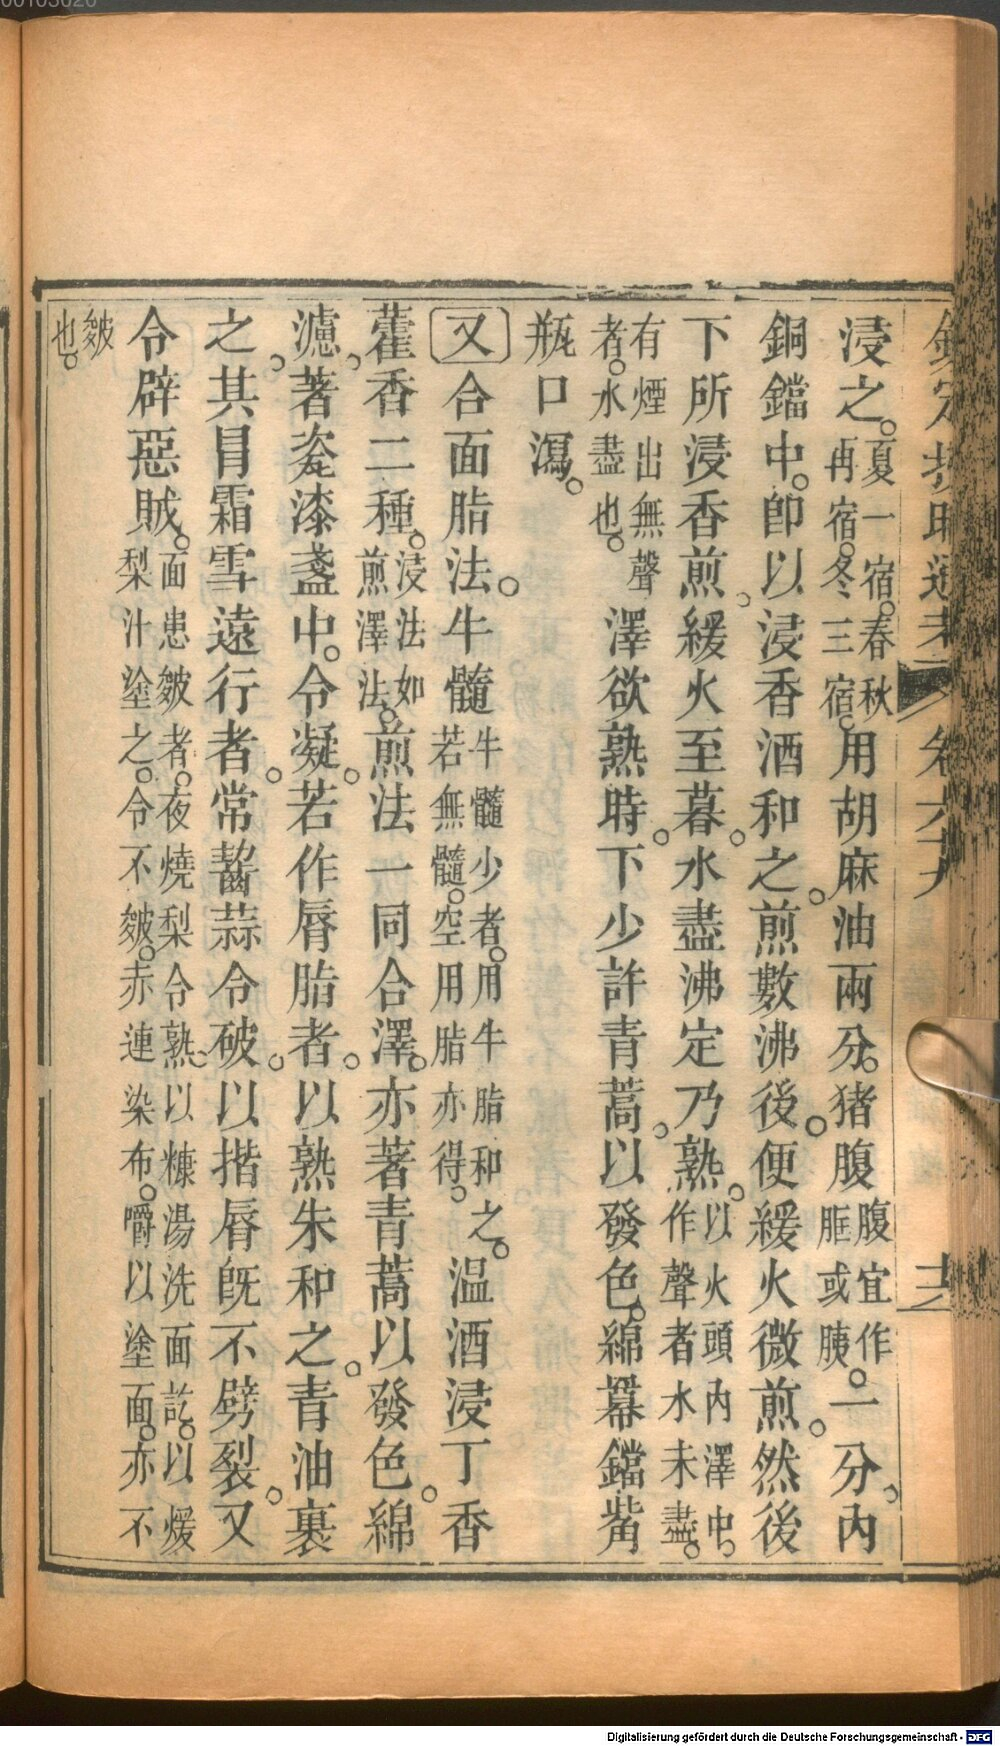 欽定授時通考 卷六十九 十二
浸之。夏一宿。春秋再宿。冬三宿。用胡麻油兩分。猪腹腹宜作或胰。一分。內
銅鐺中。卽以浸香酒和之。煎數沸後。便緩火微煎。然後
下所浸香煎。緩火至暮。水盡沸定乃熟。以火頭內澤中。作聲者水未盡。
有煙出無聲者。水盡也。澤欲熟時。下少許青蒿。以發色。綿羃鐺觜
瓶口瀉。
又合面脂法。牛髓牛髓少者。用牛脂和之。若無髓。空用脂亦得。温酒浸丁香
藿香二種。浸法如煎澤法。煎法一同合澤。亦著青蒿以發色。綿
濾。著瓷漆盞中。令凝。若作唇脂者。以熟朱和之。青油裹
之。其冒霜雪遠行者。常齧蒜令破。以揩唇旣不劈裂。又
令辟惡賊。面患皴者。夜燒梨令熟。以糠湯洗面訖。以煖梨汁塗之。令不皴。赤連染布。嚼以塗面。亦不
皴也。
Digitalisierung gefördert durch die Deutsche Forschungsgemeinschaft - DFG